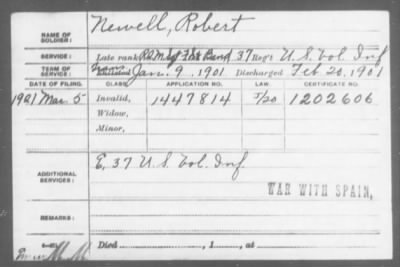 NAME OF SOLDIER: Newell, Robert
SERVICE: Late rank, 37 Reg't U. S. Vol. Inf
TERM OF SERVICE: Trans Enlisted Jan. 9, 1901 Discharged Feb 20, 1901
DATE OF FILING. CLASS. APPLICATION NO. LAW. CERTIFICATE NO.
1921 Mar. 5 Invalid, 1447814 5/20 1202606
Widow,
Minor,
ADDITIONAL SERVICES: E, 37 U. S. Vol. Inf
WAR WITH SPAIN,
REMARKS:
Died , 1 , at